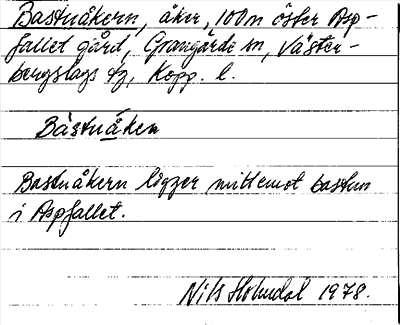 Bastuåkern, åker, 100m öster Asp-
fallet gård, Grangärde sn, Väster-
bergslags tg, Kopp. l.
Bàstuåken
Bastuåkern ligger mittemot bastun
i Aspfallet.
Nils Holmdal 1978.